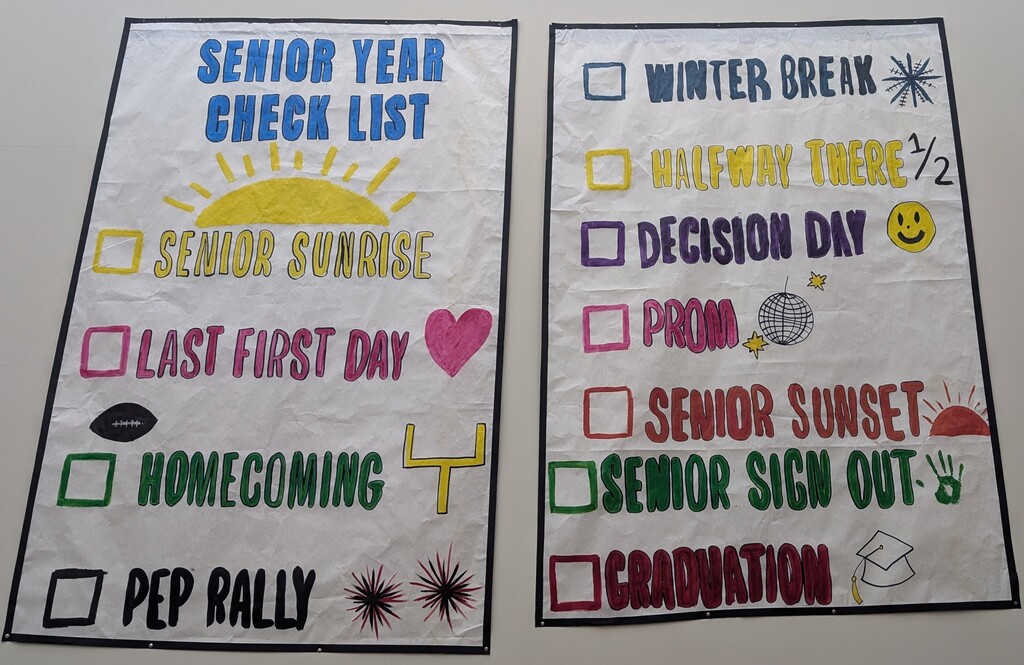 SENIOR YEAR
CHECK LIST
SENIOR SUNRISE
LAST FIRST DAY
HOMECOMING
PEP RALLY
WINTER BREAK
HALFWAY THERE 1/2
DECISION DAY
PROM
SENIOR SUNSET
SENIOR SIGN OUT.
GRADUATION